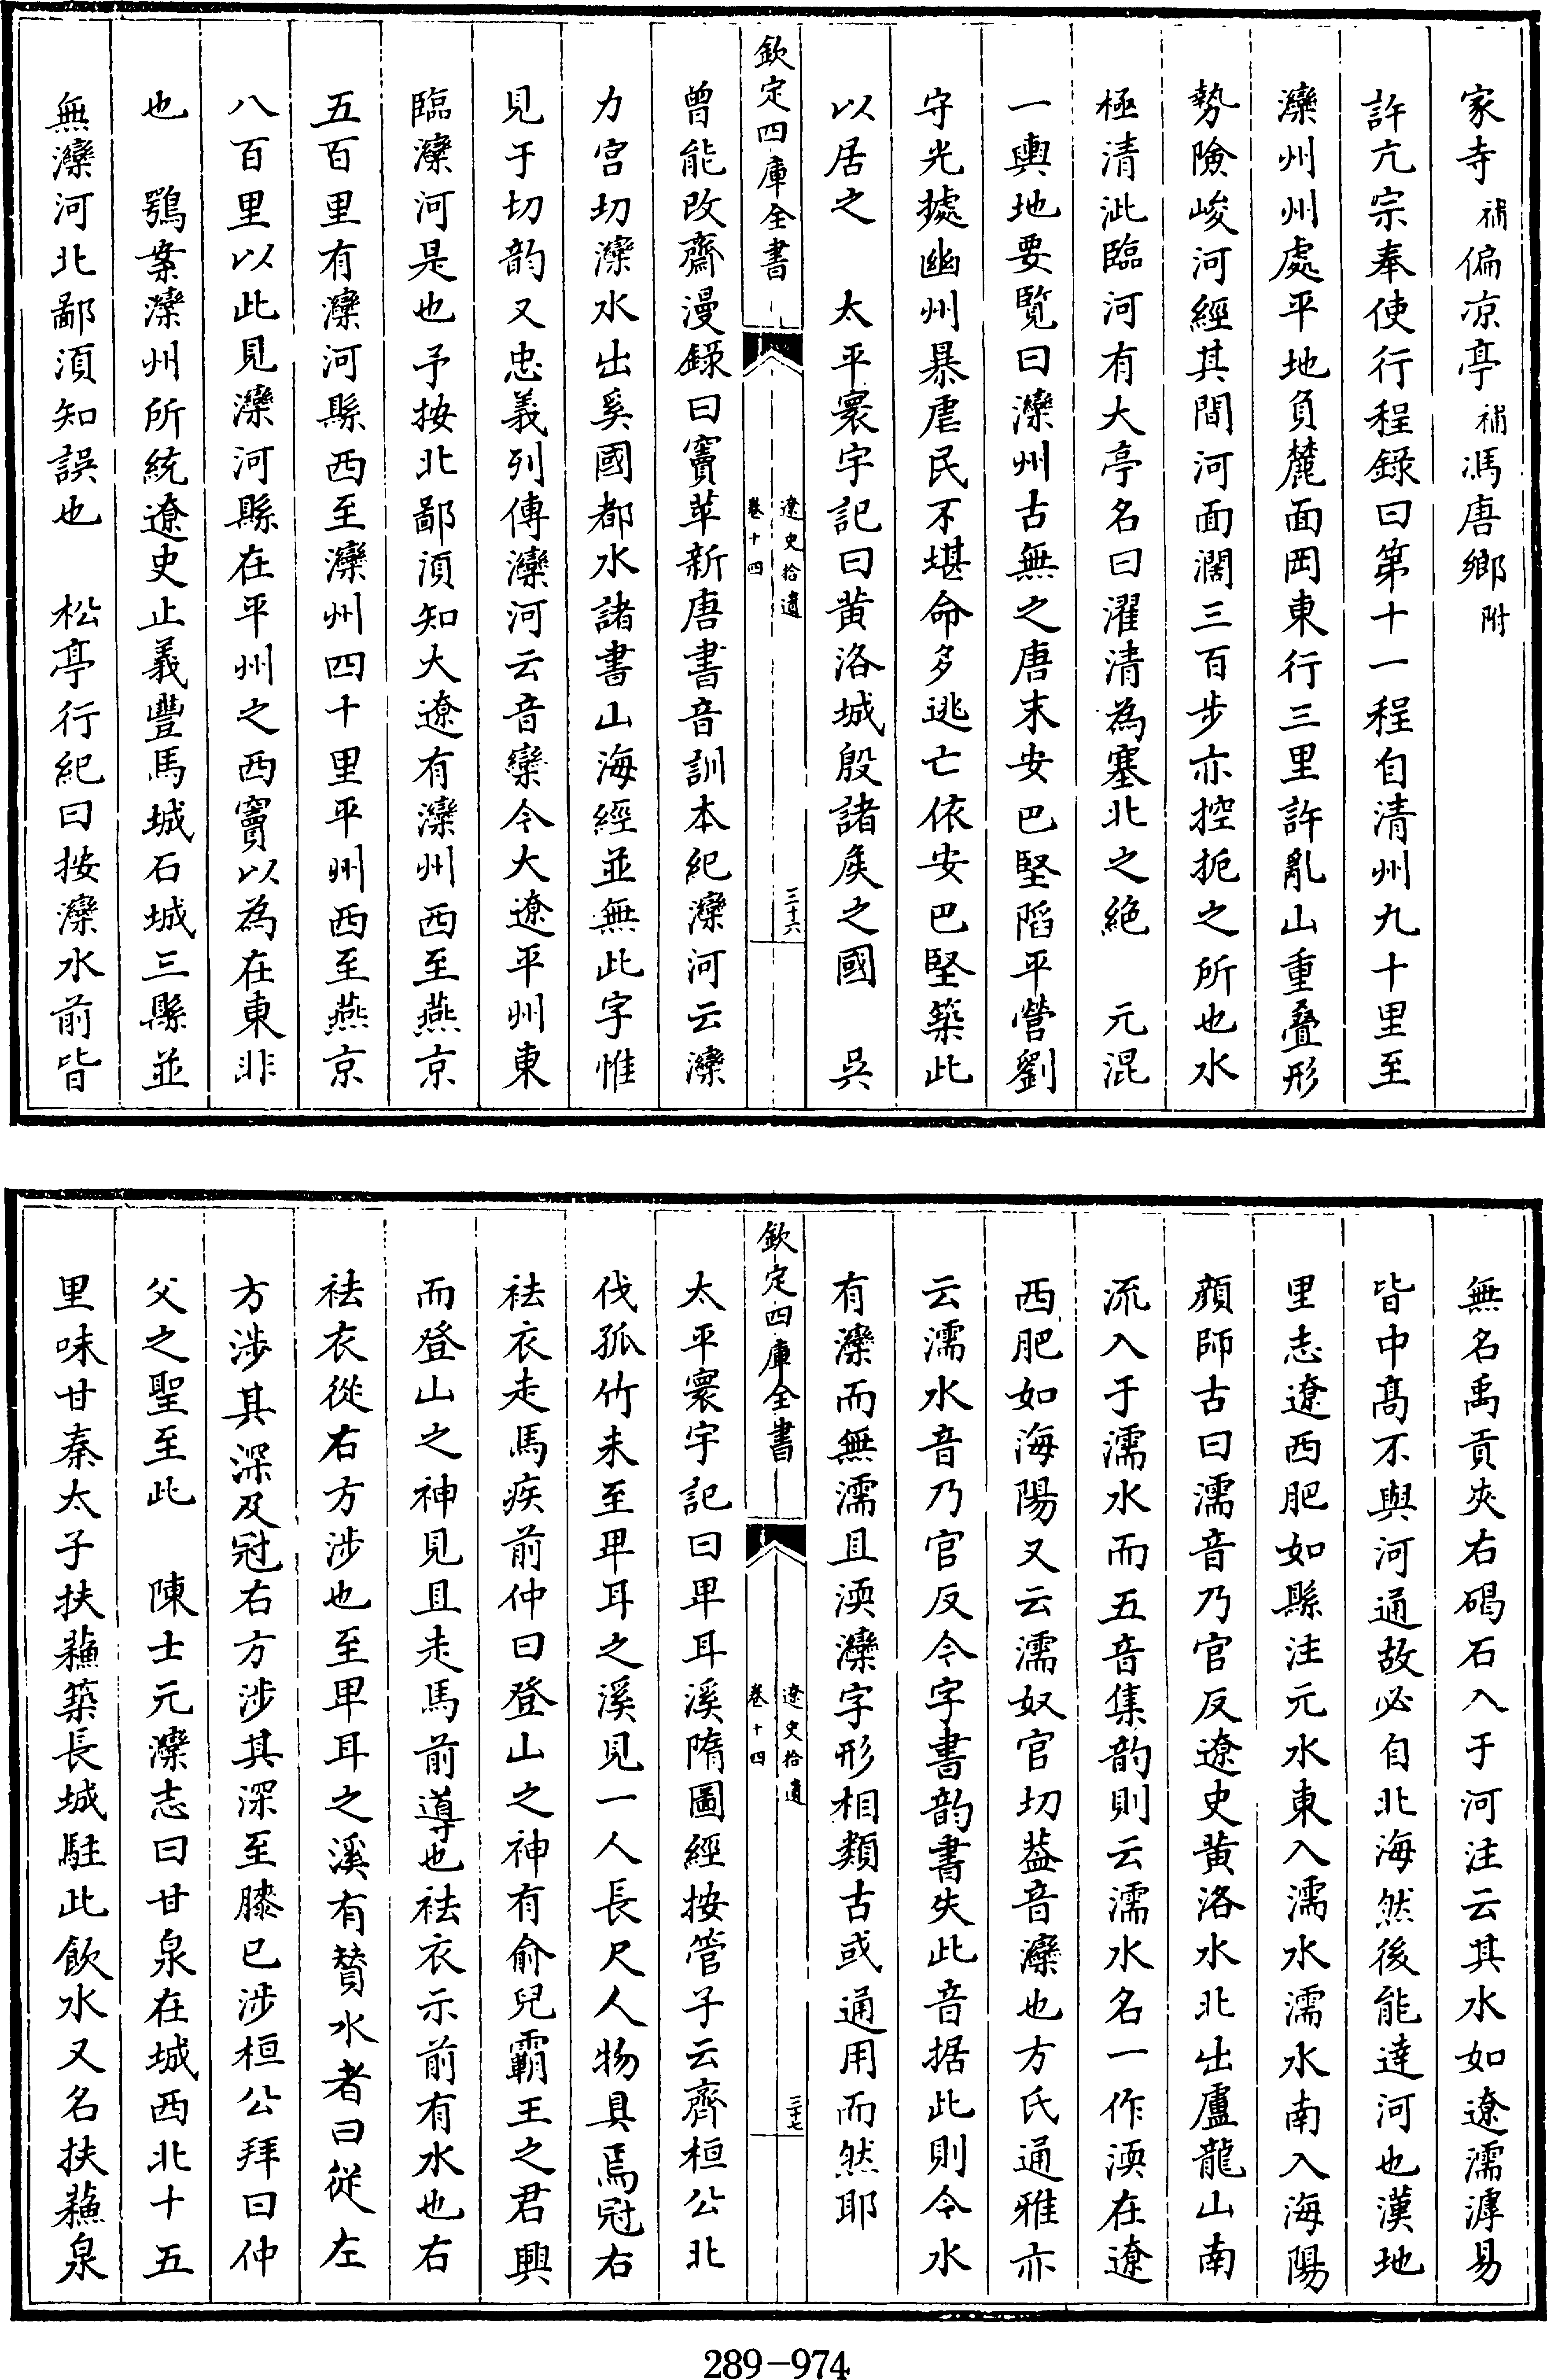 家寺補偏凉亭補馮唐鄉附
許亢宗奉使行程録曰第十一程自清州九十里至
灤州州處平地負麓面岡東行三里許亂山重疊形
勢險峻河經其間河面濶三百步亦控扼之所也水
極清泚臨河有大亭名曰濯清為塞北之絶　元混
一輿地要覽曰灤州古無之唐末安巴堅䧟平營劉
守光據幽州暴虐民不堪命多逃亡依安巴堅築此
以居之　太平寰宇記曰黄洛城殷諸矦之國　吳
欽定四庫全書
遼史拾遺
卷十四
三十六
曾能改齋漫錄曰竇苹新唐書音訓本紀灤河云灤
力官切灤水出奚國都水諸書山海經並無此字惟
見于切韵又忠義列傳灤河云音欒今大遼平州東
臨灤河是也予按北鄙湏知大遼有灤州西至燕京
五百里有灤河縣西至灤州四十里平州西至燕京
八百里以此見灤河縣在平州之西竇以為在東非
也　鶚案灤州所統遼史止義豐馬城石城三縣並
無灤河北鄙湏知誤也　松亭行紀曰按灤水前皆
無名禹貢夾右碣石入于河注云其水如遼濡滹易
皆中髙不與河通故必自北海然後能達河也漢地
里志遼西肥如縣注元水東入濡水濡水南入海陽
顔師古曰濡音乃官反遼史黄洛水北出盧龍山南
流入于濡水而五音集韵則云濡水名一作渜在遼
西肥如海陽又云濡奴官切葢音灤也方氏通雅亦
云濡水音乃官反今字書韵書失此音据此則今水
有灤而無濡且渜灤字形相類古或通用而然耶
欽定四庫全書
遼史拾遺
卷十四
三十七
太平寰宇記曰卑耳溪隋圖經按管子云齊桓公北
伐孤竹未至卑耳之溪見一人長尺人物具焉冠右
袪衣走馬疾前仲曰登山之神有俞兒霸王之君興
而登山之神見且走馬前導也袪衣示前有水也右
袪衣從右方涉也至卑耳之溪有賛水者曰從左
方涉其深及冠右方涉其深至膝已涉桓公拜曰仲
父之聖至此　陳士元灤志曰甘泉在城西北十五
里味甘秦太子扶蘓築長城駐此飲水又名扶蘓泉
289-974